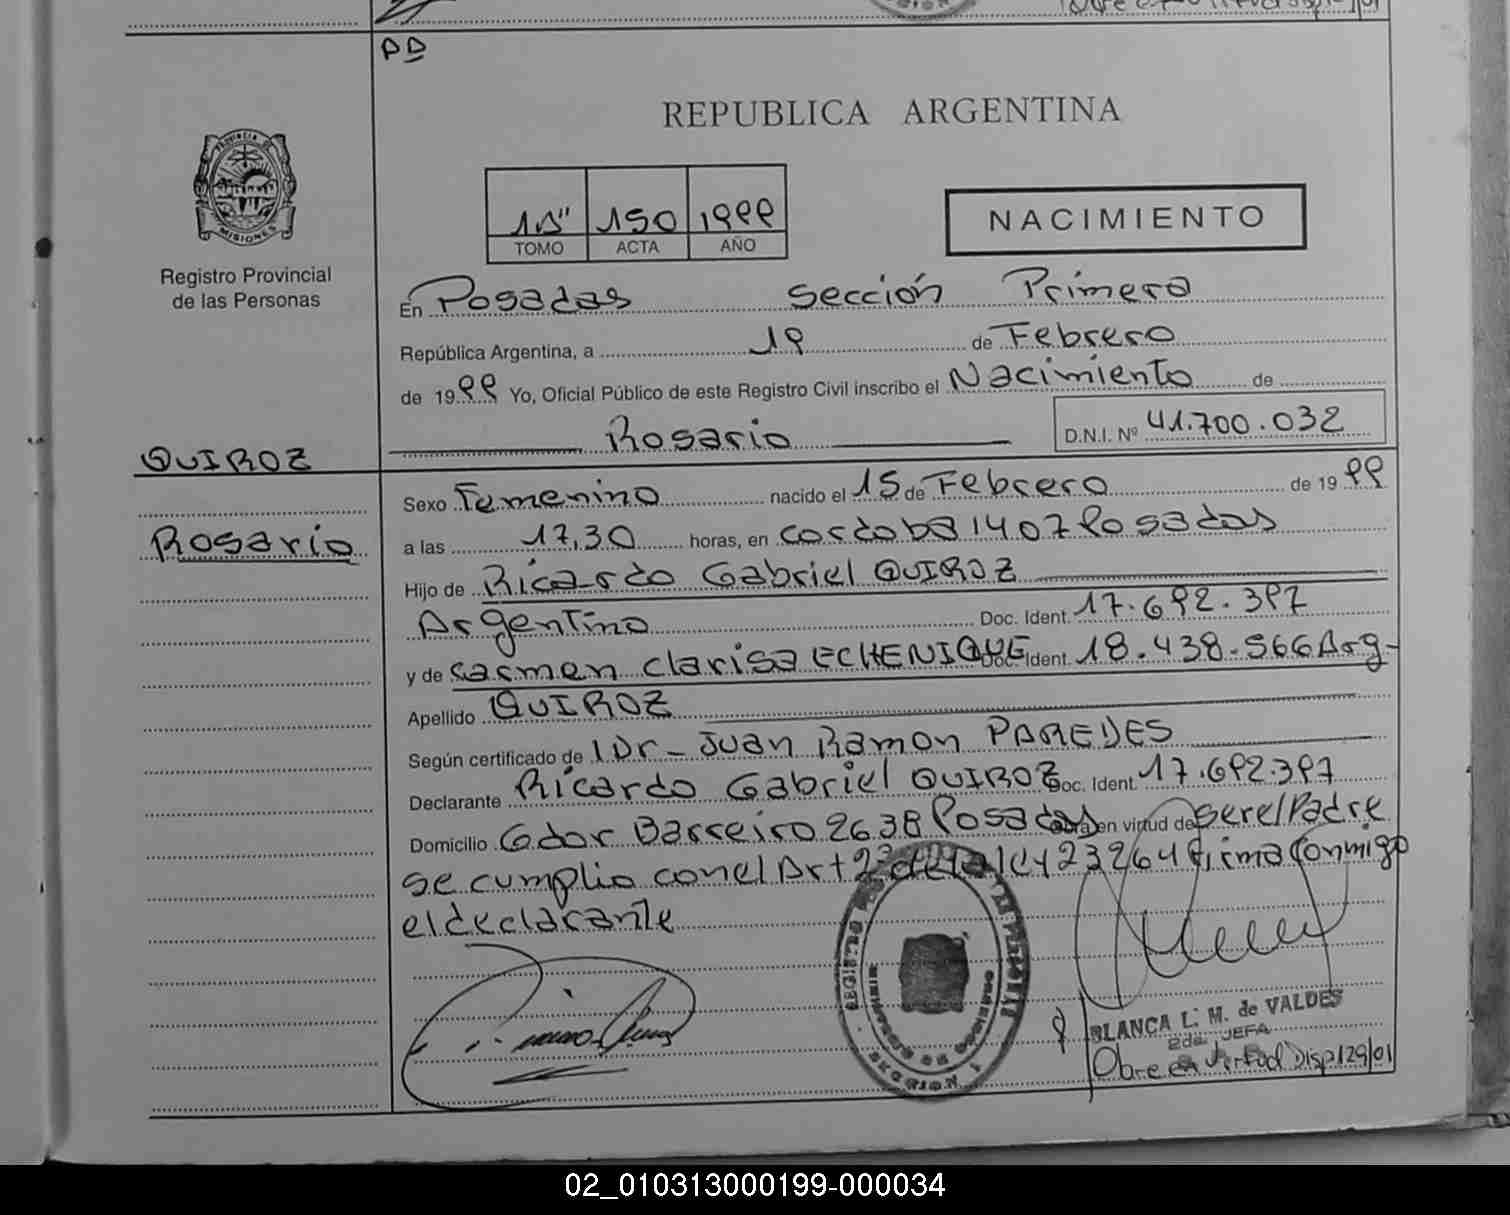 DD
REPUBLICA ARGENTINA
PROVINCIA D
MISIONES
1D" 150 1999
TOMO ACTA AÑO
NACIMIENTO
Registro Provincial
de las Personas
En Posadas sección Primera
República Argentina, a 19 de Febrero
de 1999 Yo, Oficial Público de este Registro Civil inscribo el Nacimiento de
Rosario D.N.I. Nº 41.700.032
QUIROZ
Rosario
Sexo Femenino nacido el 15 de Febrero de 1999
a las 17,30 horas, en cordoba 1407 Posadas
Hijo de Ricardo Gabriel QUIROZ
Argentino Doc. Ident. 17.692.397
y de carmen clarisa ECHENIQUE Doc. Ident. 18.438.566 Arg-
Apellido QUIROZ
Según certificado de 1 Dr- Juan Ramon PAREDES
Declarante Ricardo Gabriel QUIROZ Doc. Ident. 17.692.397
Domicilio Gdor Barreiro 2638 Posadas Obra en virtud de ser el Padre
se cumplio con el Art 2º de la ley 23264 firma conmigo
el declarante
BLANCA L. M. de VALDES
2da. JEFA
Obre en virtud Disp 129/01
02_010313000199-000034